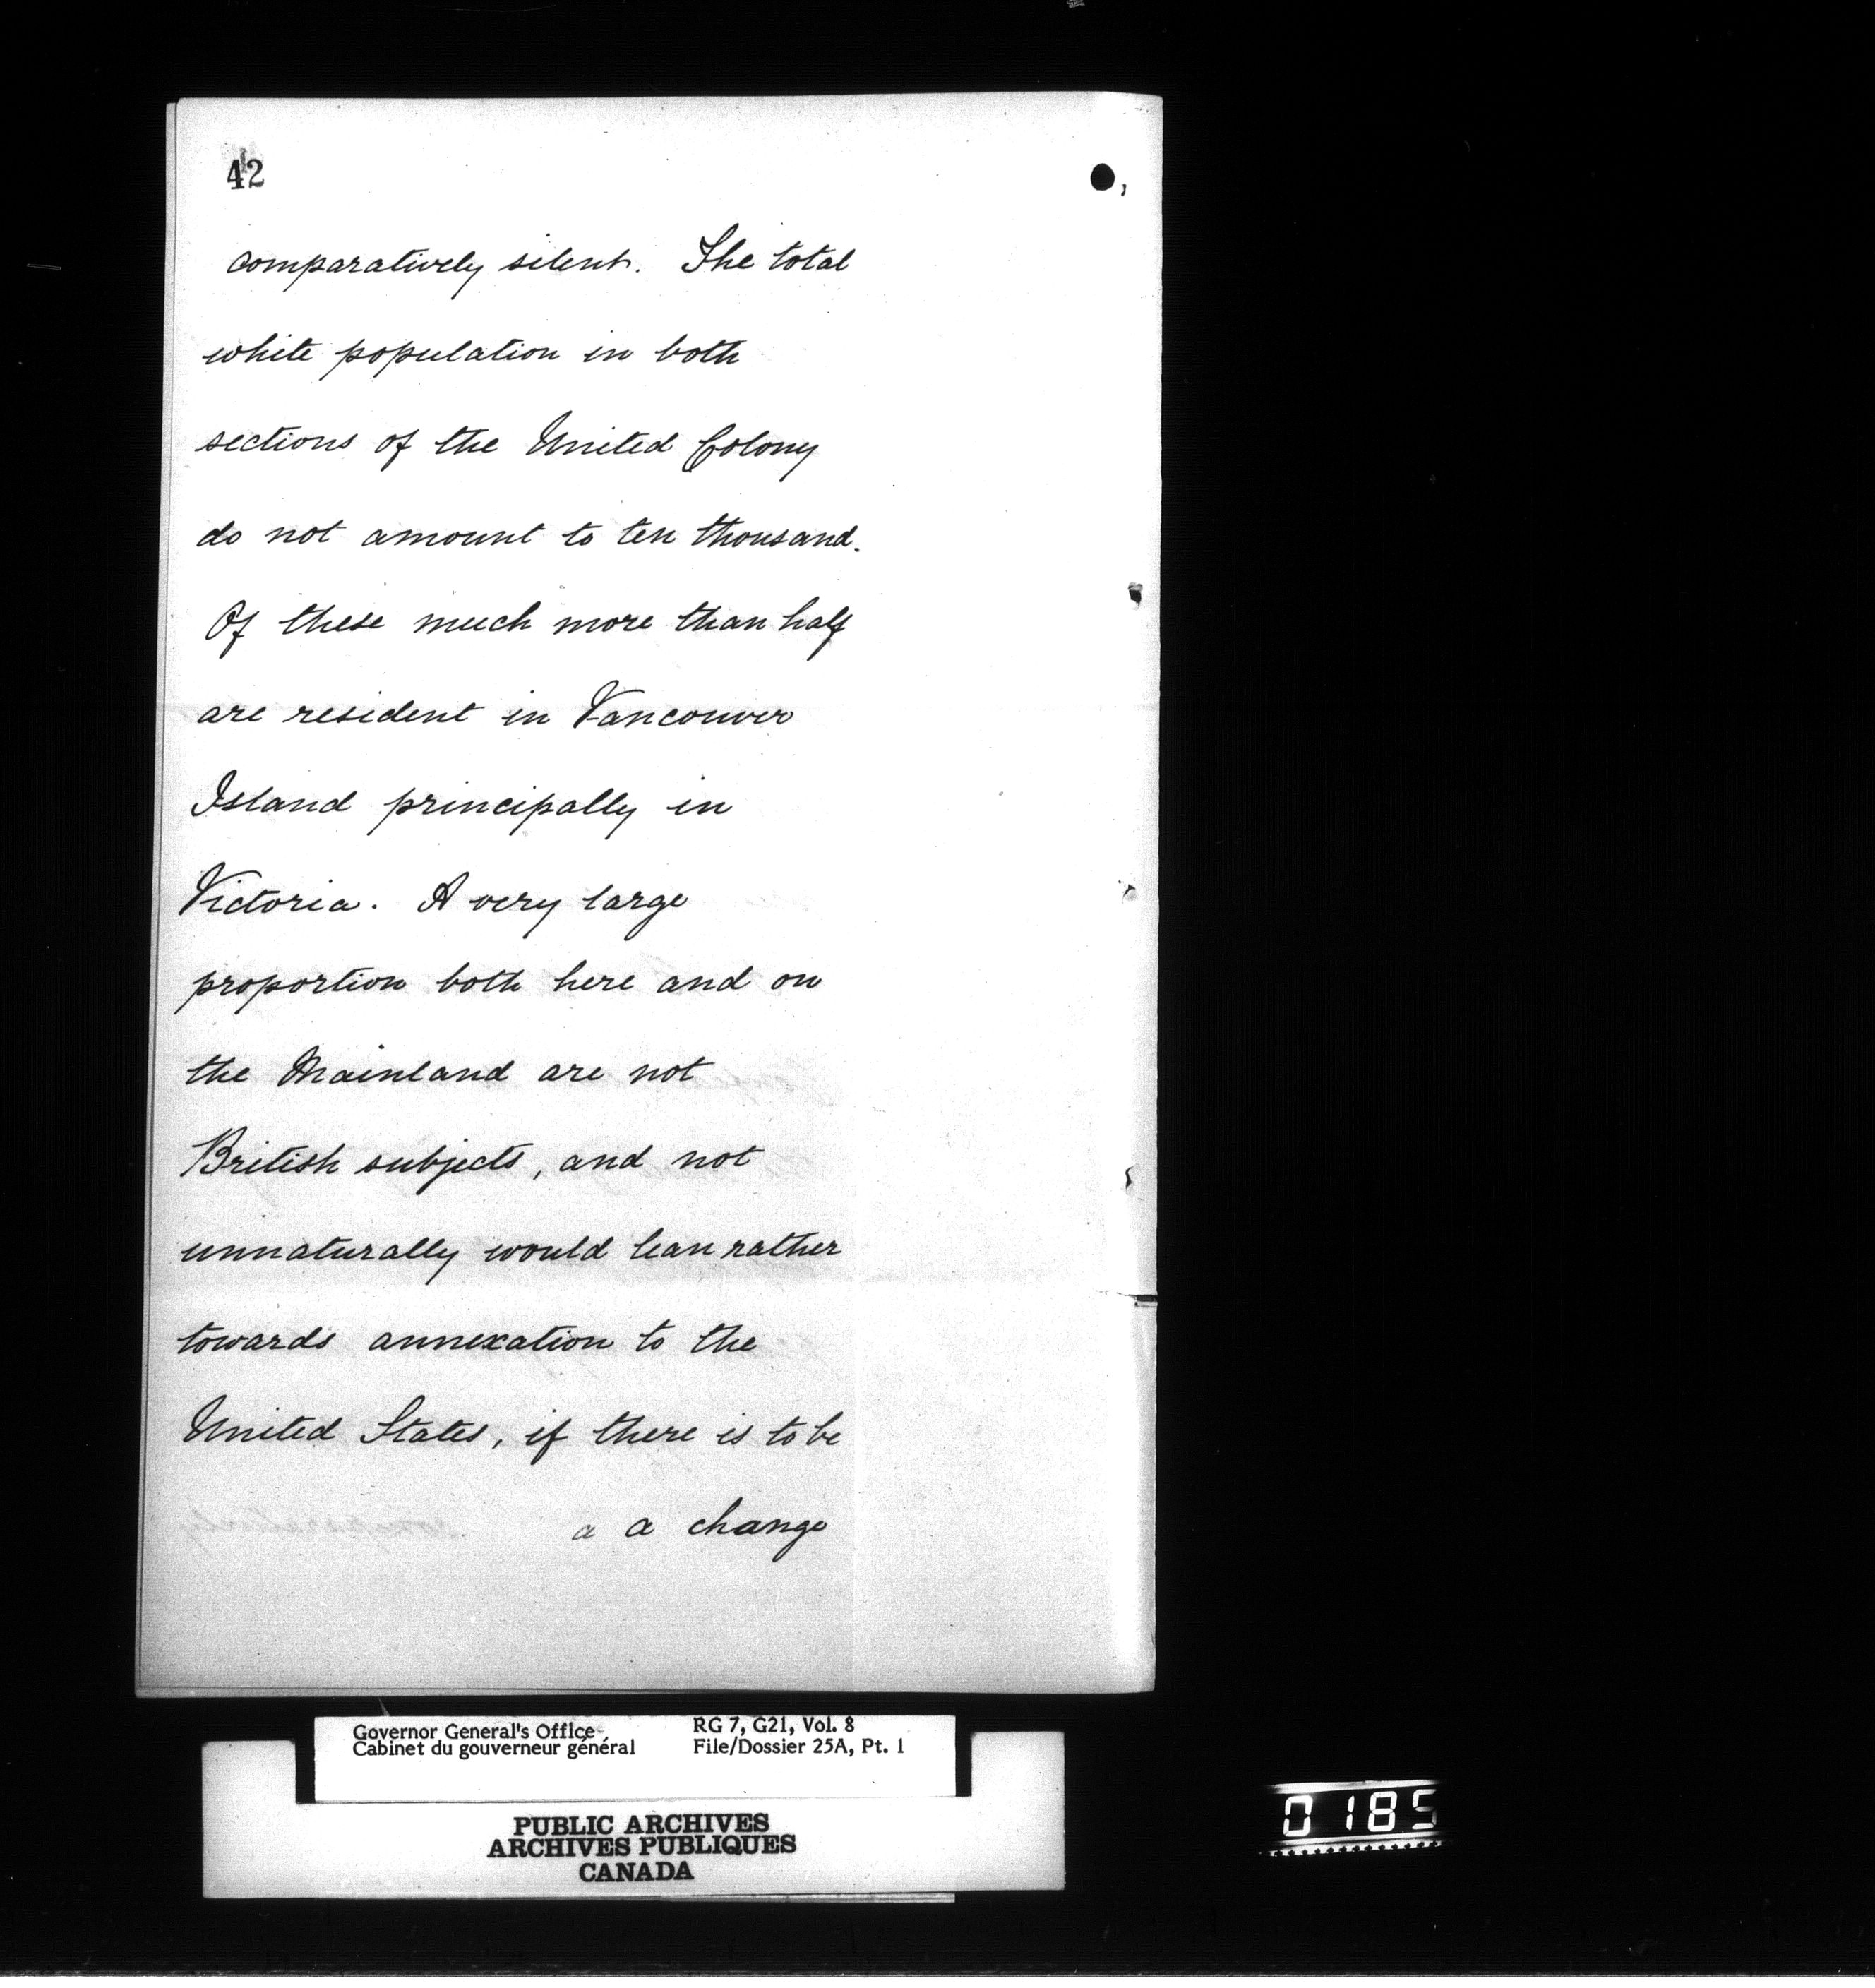 42
comparatively silent. The total
white population in both
sections of the United Colony
do not amount to ten thousand.
Of these much more than half
are resident in Vancouver
Island principally in
Victoria. A very large
proportion both here and on
the Mainland are not
British subjects, and not
unnaturally would lean rather
towards annexation to the
United States, if there is to be
a a change
Governor General's Office
Cabinet du gouverneur général
RG 7, G21, Vol. 8
File/Dossier 25A, Pt. 1
PUBLIC ARCHIVES
ARCHIVES PUBLIQUES
CANADA
0185